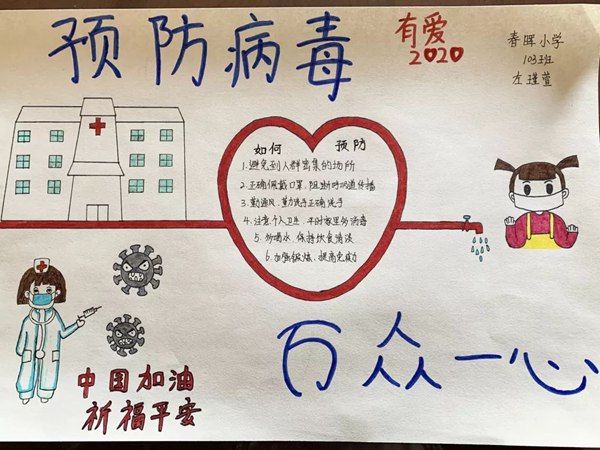 预防病毒
有爱
2020
春晖小学
103班
左瑾萱
如何 预防
1.避免到人群密集的场所
2.正确佩戴口罩、阻断呼吸道传播
3.勤通风、勤洗手正确洗手
4.注意个人卫生、平时家里多消毒
5.多喝水、保持饮食清淡
6.加强锻炼、提高免疫力
中国加油
祈福平安
万众一心